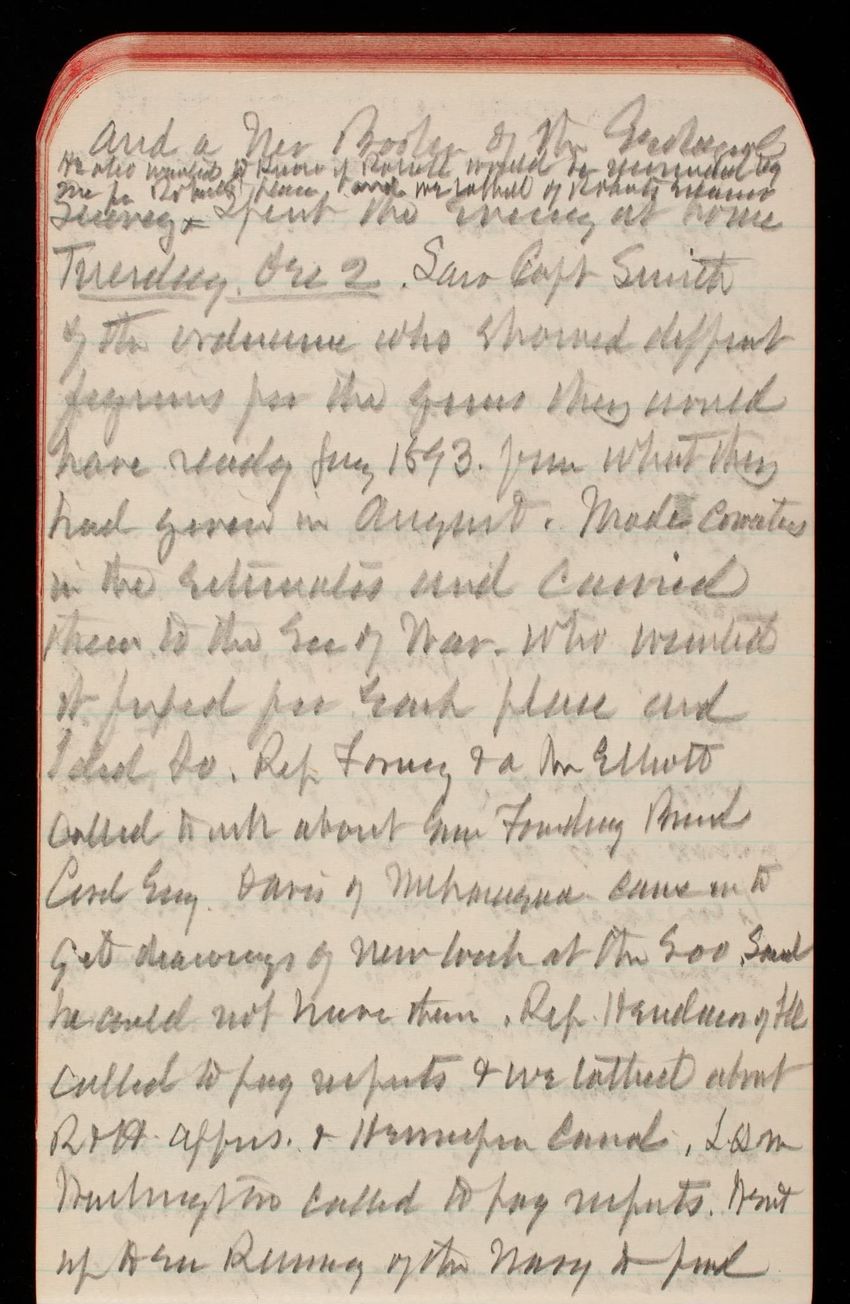 and a Mr Booker of the Geological
He also wanted to know if Rowell would be recommended by
me for Roberts place and we talked of Roberts
Survey & Spent the Evening at home
Tuesday. Dec 2. Saw Capt Smith
of the ordnance who showed diffrent
figures for the guns they would
have ready July 1893. from what they
had given in August. Made
in the Estimates and carried
them to the Sec of War. who wanted
it fixed for each place and
I did so. Rep Forney & a Mr Elliott
called to ask about Gun Foundry Board
Cord Eng. Davis of came in to
get drawings of new lock at the Soo said
he could not have them. Rep. Henderson of Ill
called to pay respects & we talked about
R & H affrs. & Hennepin Canal. L Q M
Washington called to pay respects. Went
up to see Ramsey of the Navy to find